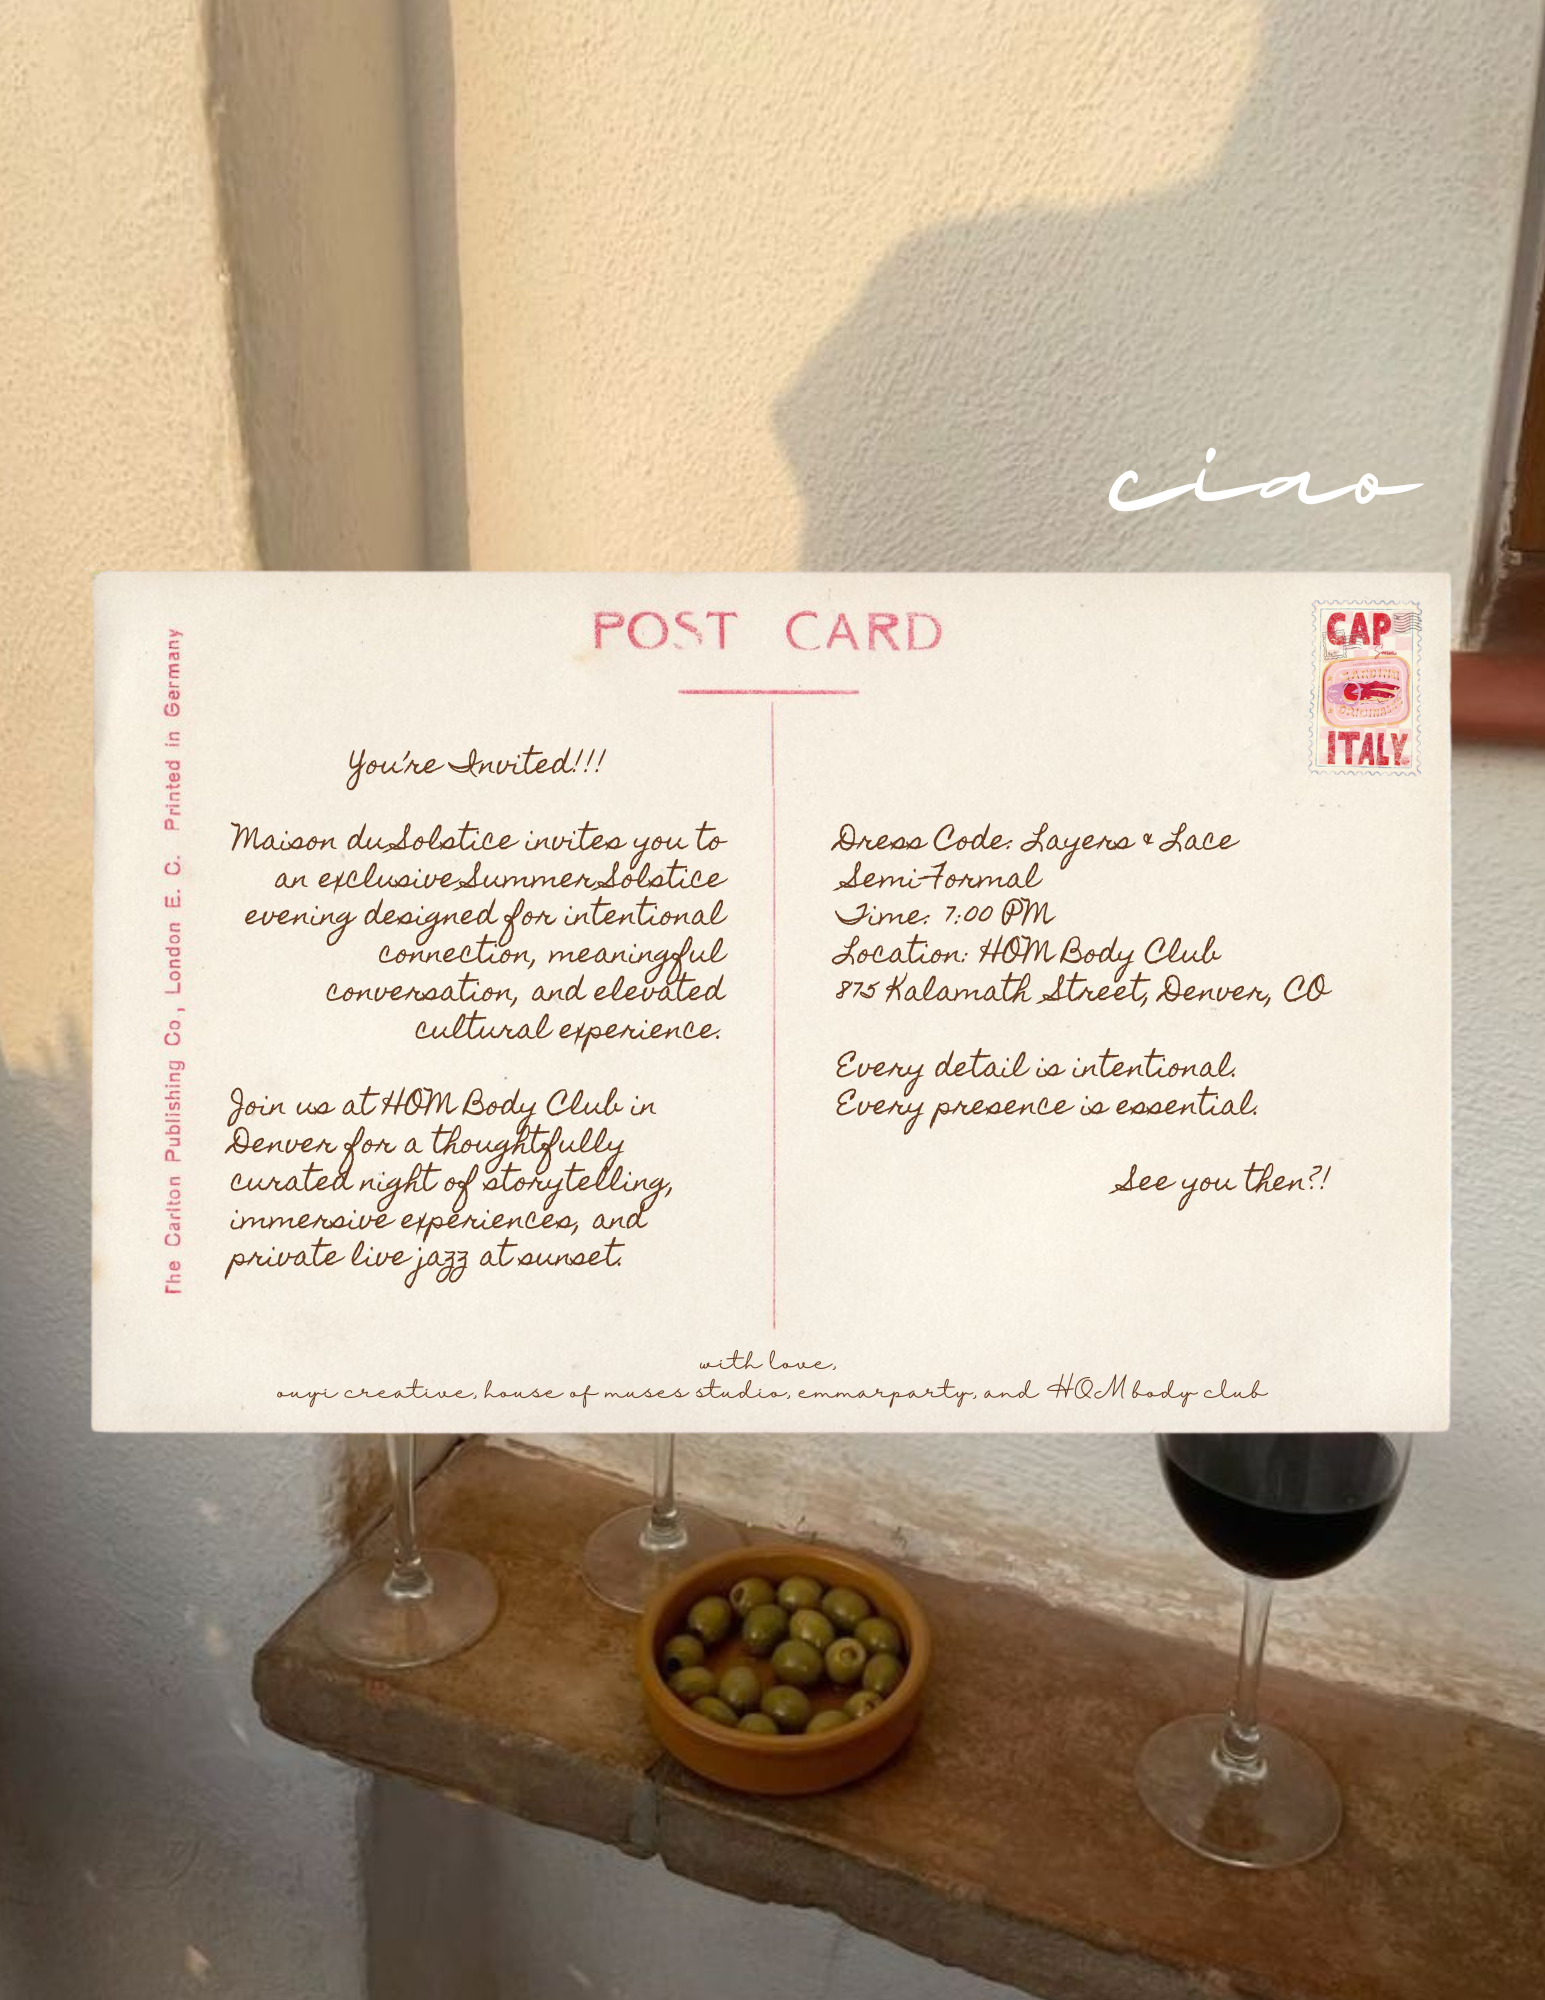 ciao
POST CARD
CAP
SARDINE
ORIGINALE
ITALY
The Carlton Publishing Co., London E. C. Printed in Germany
You're Invited!!!
Maison du Solstice invites you to
an exclusive Summer Solstice
evening designed for intentional
connection, meaningful
conversation, and elevated
cultural experience.
Join us at HOM Body Club in
Denver for a thoughtfully
curated night of storytelling,
immersive experiences, and
private live jazz at sunset.
Dress Code: Layers & Lace
Semi-Formal
Time: 7:00 PM
Location: HOM Body Club
875 Kalamath Street, Denver, CO
Every detail is intentional.
Every presence is essential.
See you then?!
with love,
ouyi creative, house of muses studio, emmarparty, and HOM body club